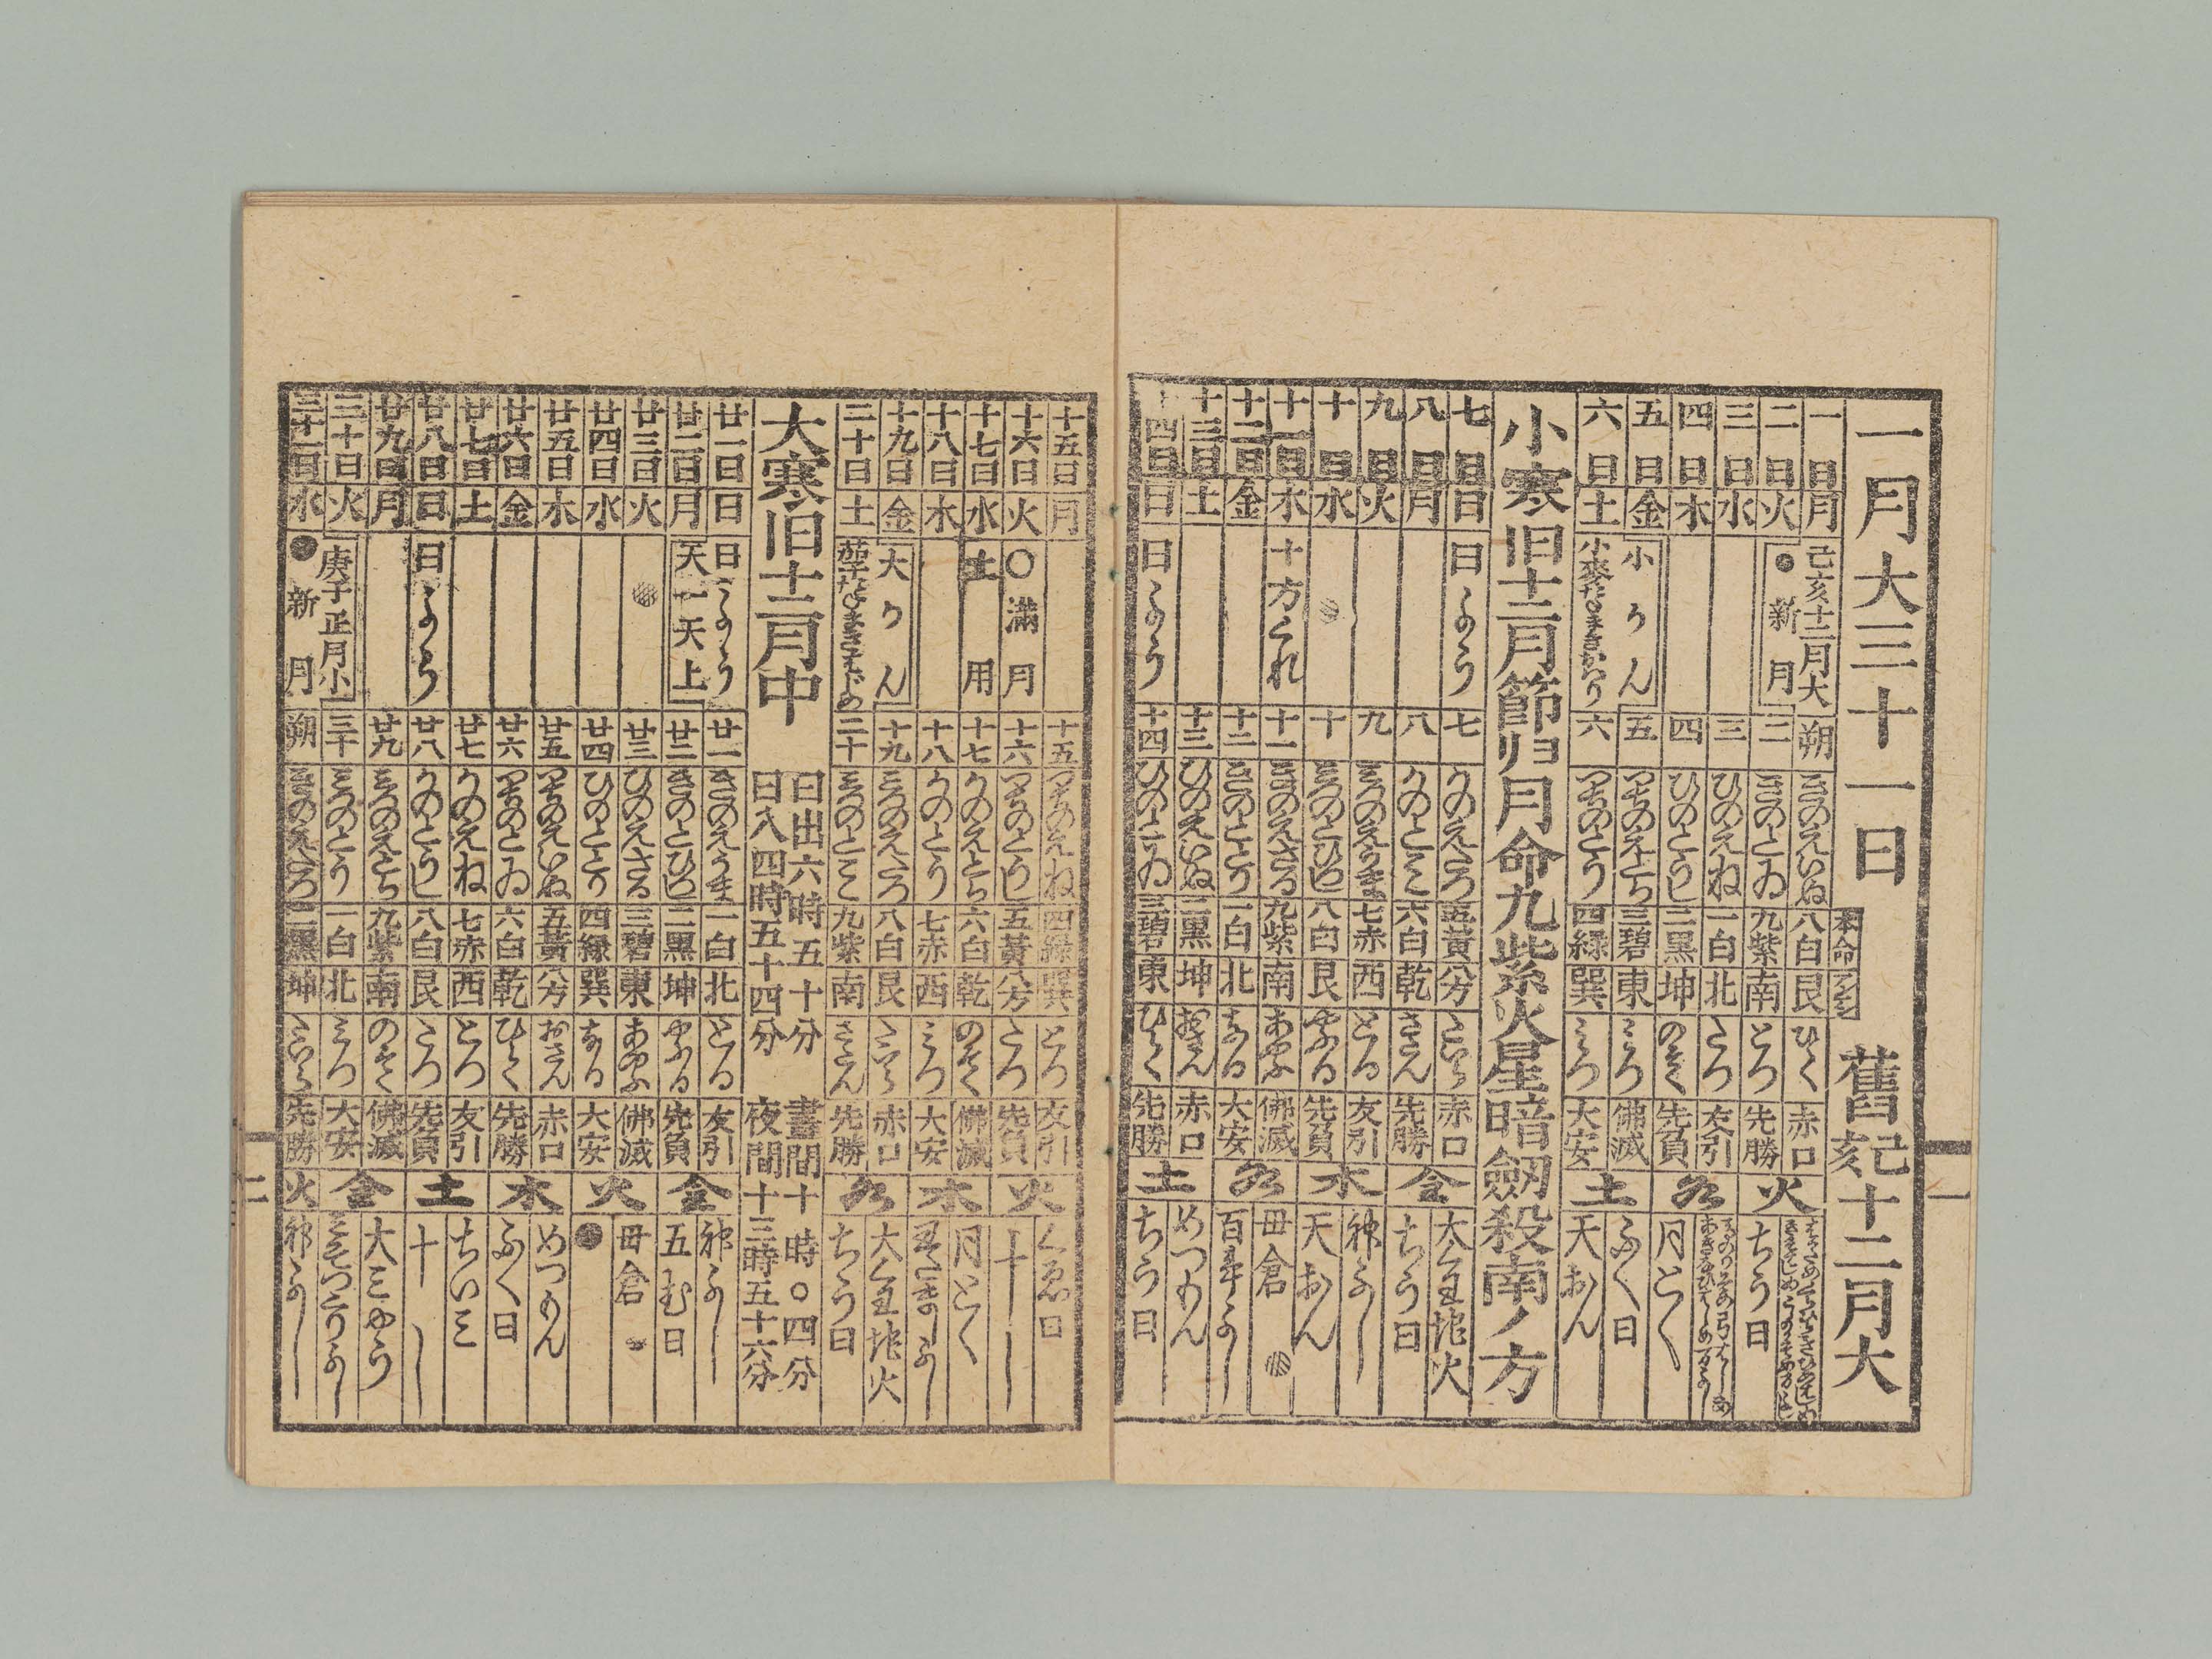 一月大三十一日 本命 アンケン 舊己亥十二月大
一日 月 己亥十二月大 朔 きのえいぬ 八白 艮 ひらく 赤口
二日 火 ● 新月 二 きのとゐ 九紫 南 とづ 先勝 火 ちう日
三日 水 三 ひのえね 一白 北 たつ 友引
四日 木 四 ひのとうし 二黒 坤 のぞく 先負 月とく
五日 金 小かん 五 つちのえとら 三碧 東 みつ 佛滅 ふく日
六日 土 小麥だなまきおはり 六 つちのとう 四緑 巽 みつ 大安 土 天おん
小寒旧十二月節ヨリ月命九紫火星暗劔殺南ノ方
七日 日 日よう 七 かのえたつ 五黄 分方 たいら 赤口 大くわ 地火
八日 月 八 かのとみ 六白 乾 さだん 先勝 金 ちう日
九日 火 九 みづのえうま 七赤 西 とる 友引 神よし
十日 水 十 みづのとひつじ 八白 艮 やぶる 先負 水 天おん
十一日 木 十方くれ 十一 きのえさる 九紫 南 あやぶ 佛滅 毋倉
十二日 金 十二 きのととり 一白 北 なる 大安 百事よし
十三日 土 十三 ひのえいぬ 二黒 坤 おさん 赤口 めつもん
十四日 日 日よう 十四 ひのとゐ 三碧 東 ひらく 先勝 土 ちう日
一
十五日 月 十五 つちのえね 四緑 巽 とづ 友引 くゑ日
十六日 火 ○満月 十六 つちのとうし 五黄 分方 たつ 先負 火 十し
十七日 水 土用 十七 かのえとら 六白 乾 のぞく 佛滅 月とく
十八日 木 十八 かのとう 七赤 西 みつ 大安 木
十九日 金 大かん 十九 みづのえたつ 八白 艮 たいら 赤口 大くわ 地火
二十日 土 茄子だなまきはじめ 二十 みづのとみ 九紫 南 さだん 先勝 ちう日
大寒旧十二月中 日出六時五十分 日入四時五十四分 晝間十時〇四分 夜間十三時五十六分
廿一日 日 日よう 廿一 きのえうま 一白 北 とる 友引 神よし
廿二日 月 天一天上 廿二 きのとひつじ 二黒 坤 やぶる 先負 金 五む日
廿三日 火 廿三 ひのえさる 三碧 東 あやぶ 佛滅 毋倉
廿四日 水 廿四 ひのととり 四緑 巽 なる 大安 火 ●
廿五日 木 廿五 つちのえいぬ 五黄 分方 おさん 赤口 めつもん
廿六日 金 廿六 つちのとゐ 六白 乾 ひらく 先勝 木 ふく日
廿七日 土 廿七 かのえね 七赤 西 とづ 友引 ちいみ
廿八日 日 日よう 廿八 かのとうし 八白 艮 たつ 先負 土 十し
廿九日 月 廿九 みづのえとら 九紫 南 のぞく 佛滅 大みやう
三十日 火 庚子正月小 三十 みづのとう 一白 北 みつ 大安 金
三十一日 水 ● 新月 朔 きのえたつ 二黒 坤 たいら 先勝 火 神よし
二